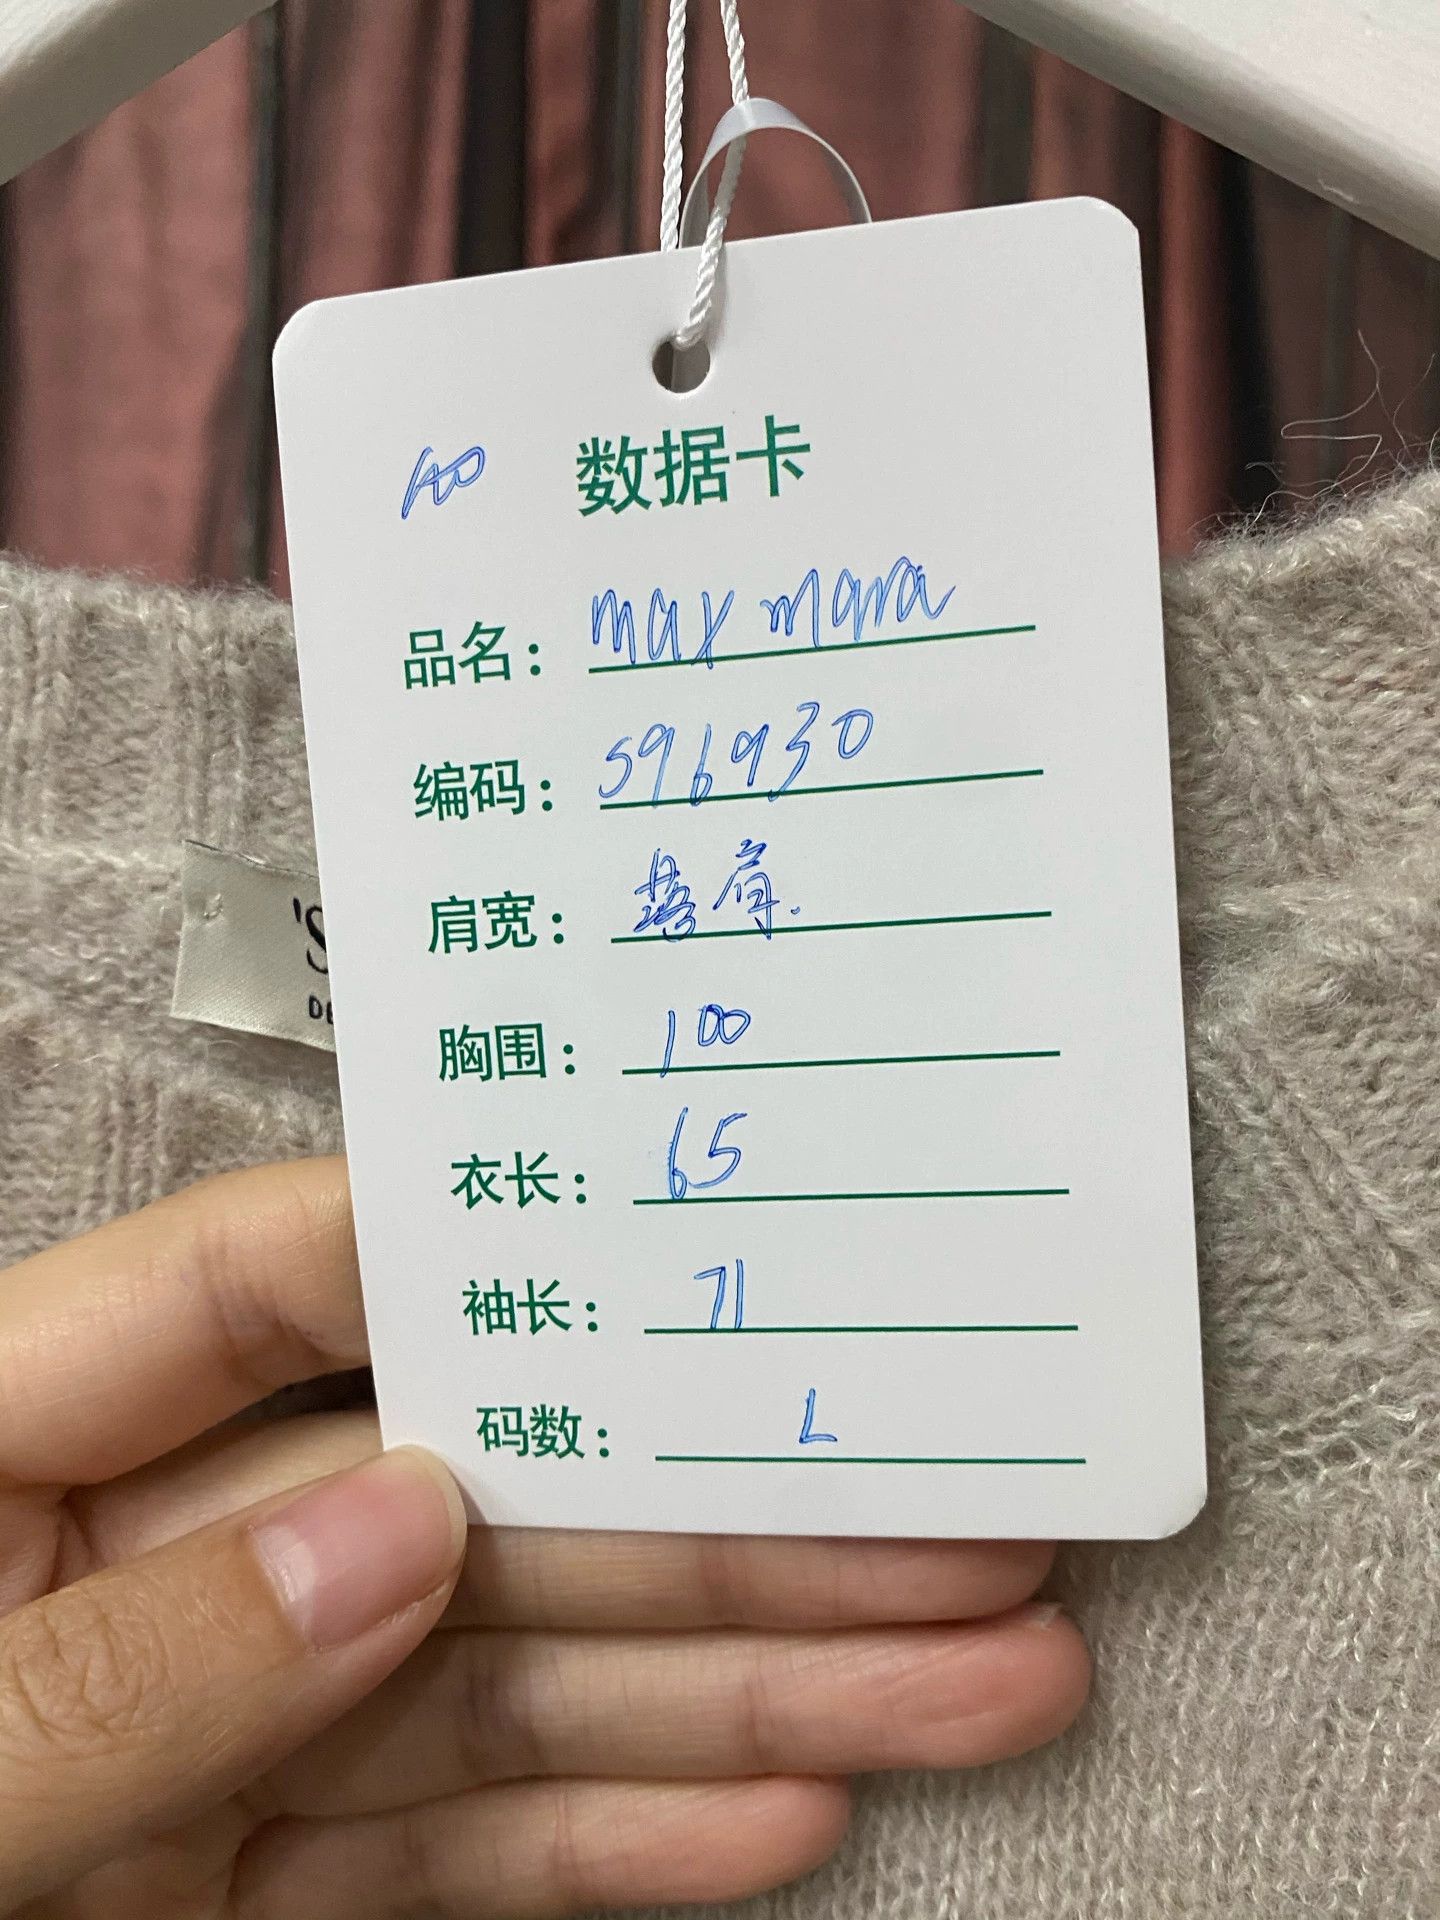 数据卡
品名: max mara
编码: 596930
肩宽: 落肩.
胸围: 100
衣长: 65
袖长: 71
码数: L
'S
DE